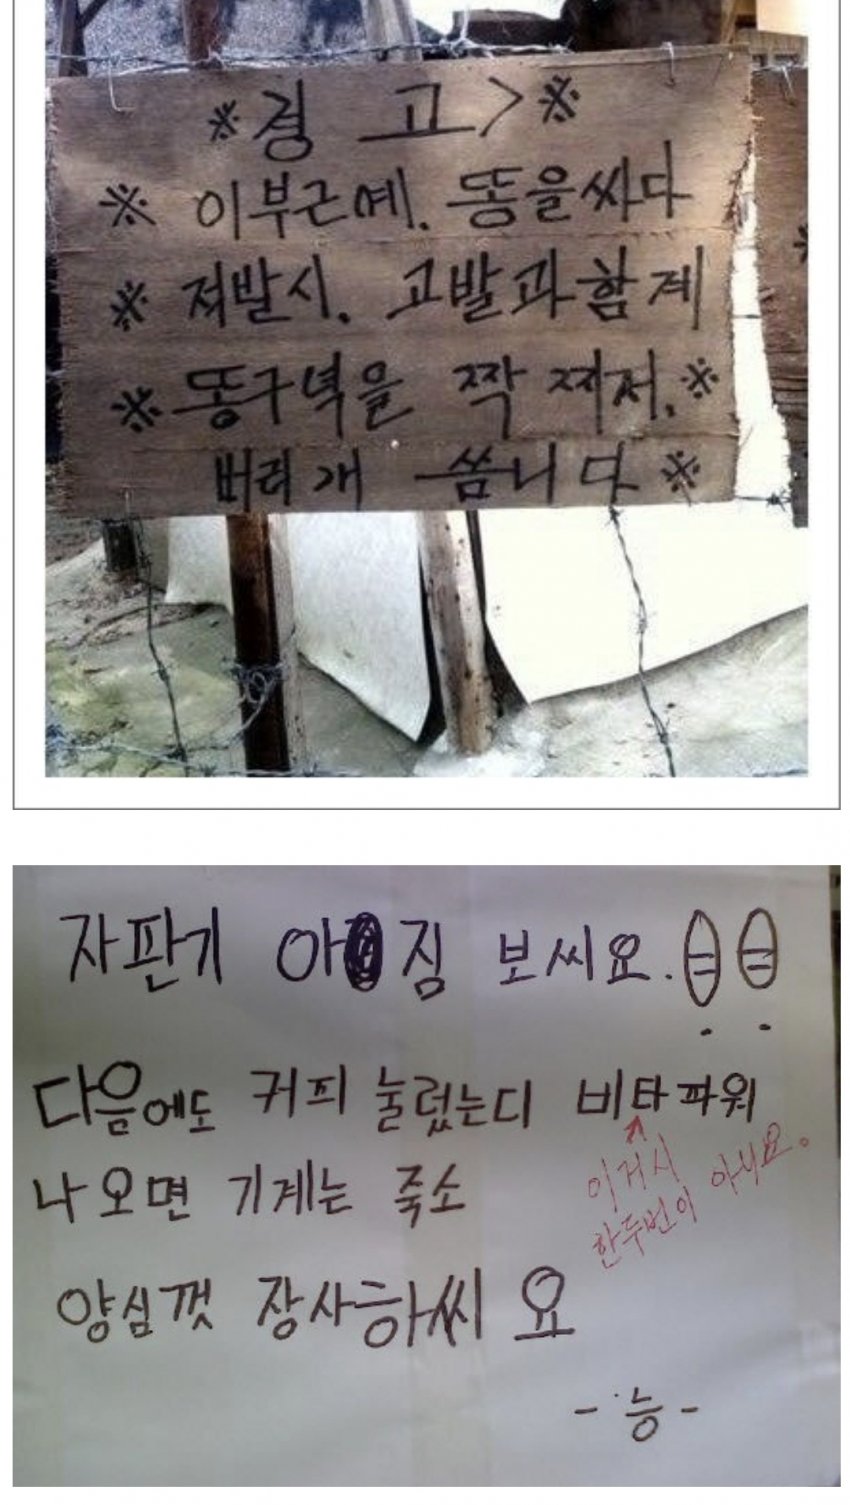 ※경 고>※
※ 이부근예. 똥을싸다
※ 져발시. 고발과함계
※똥구녁을 짝 찌저.※
버리개 씀니다※
자판기 아짐 보씨요.
다음에도 커피 눌렀는디 비타파워
이거시
한두번이 아니요.
나오면 기계는 죽소
양심껏 장사하씨요
-능-